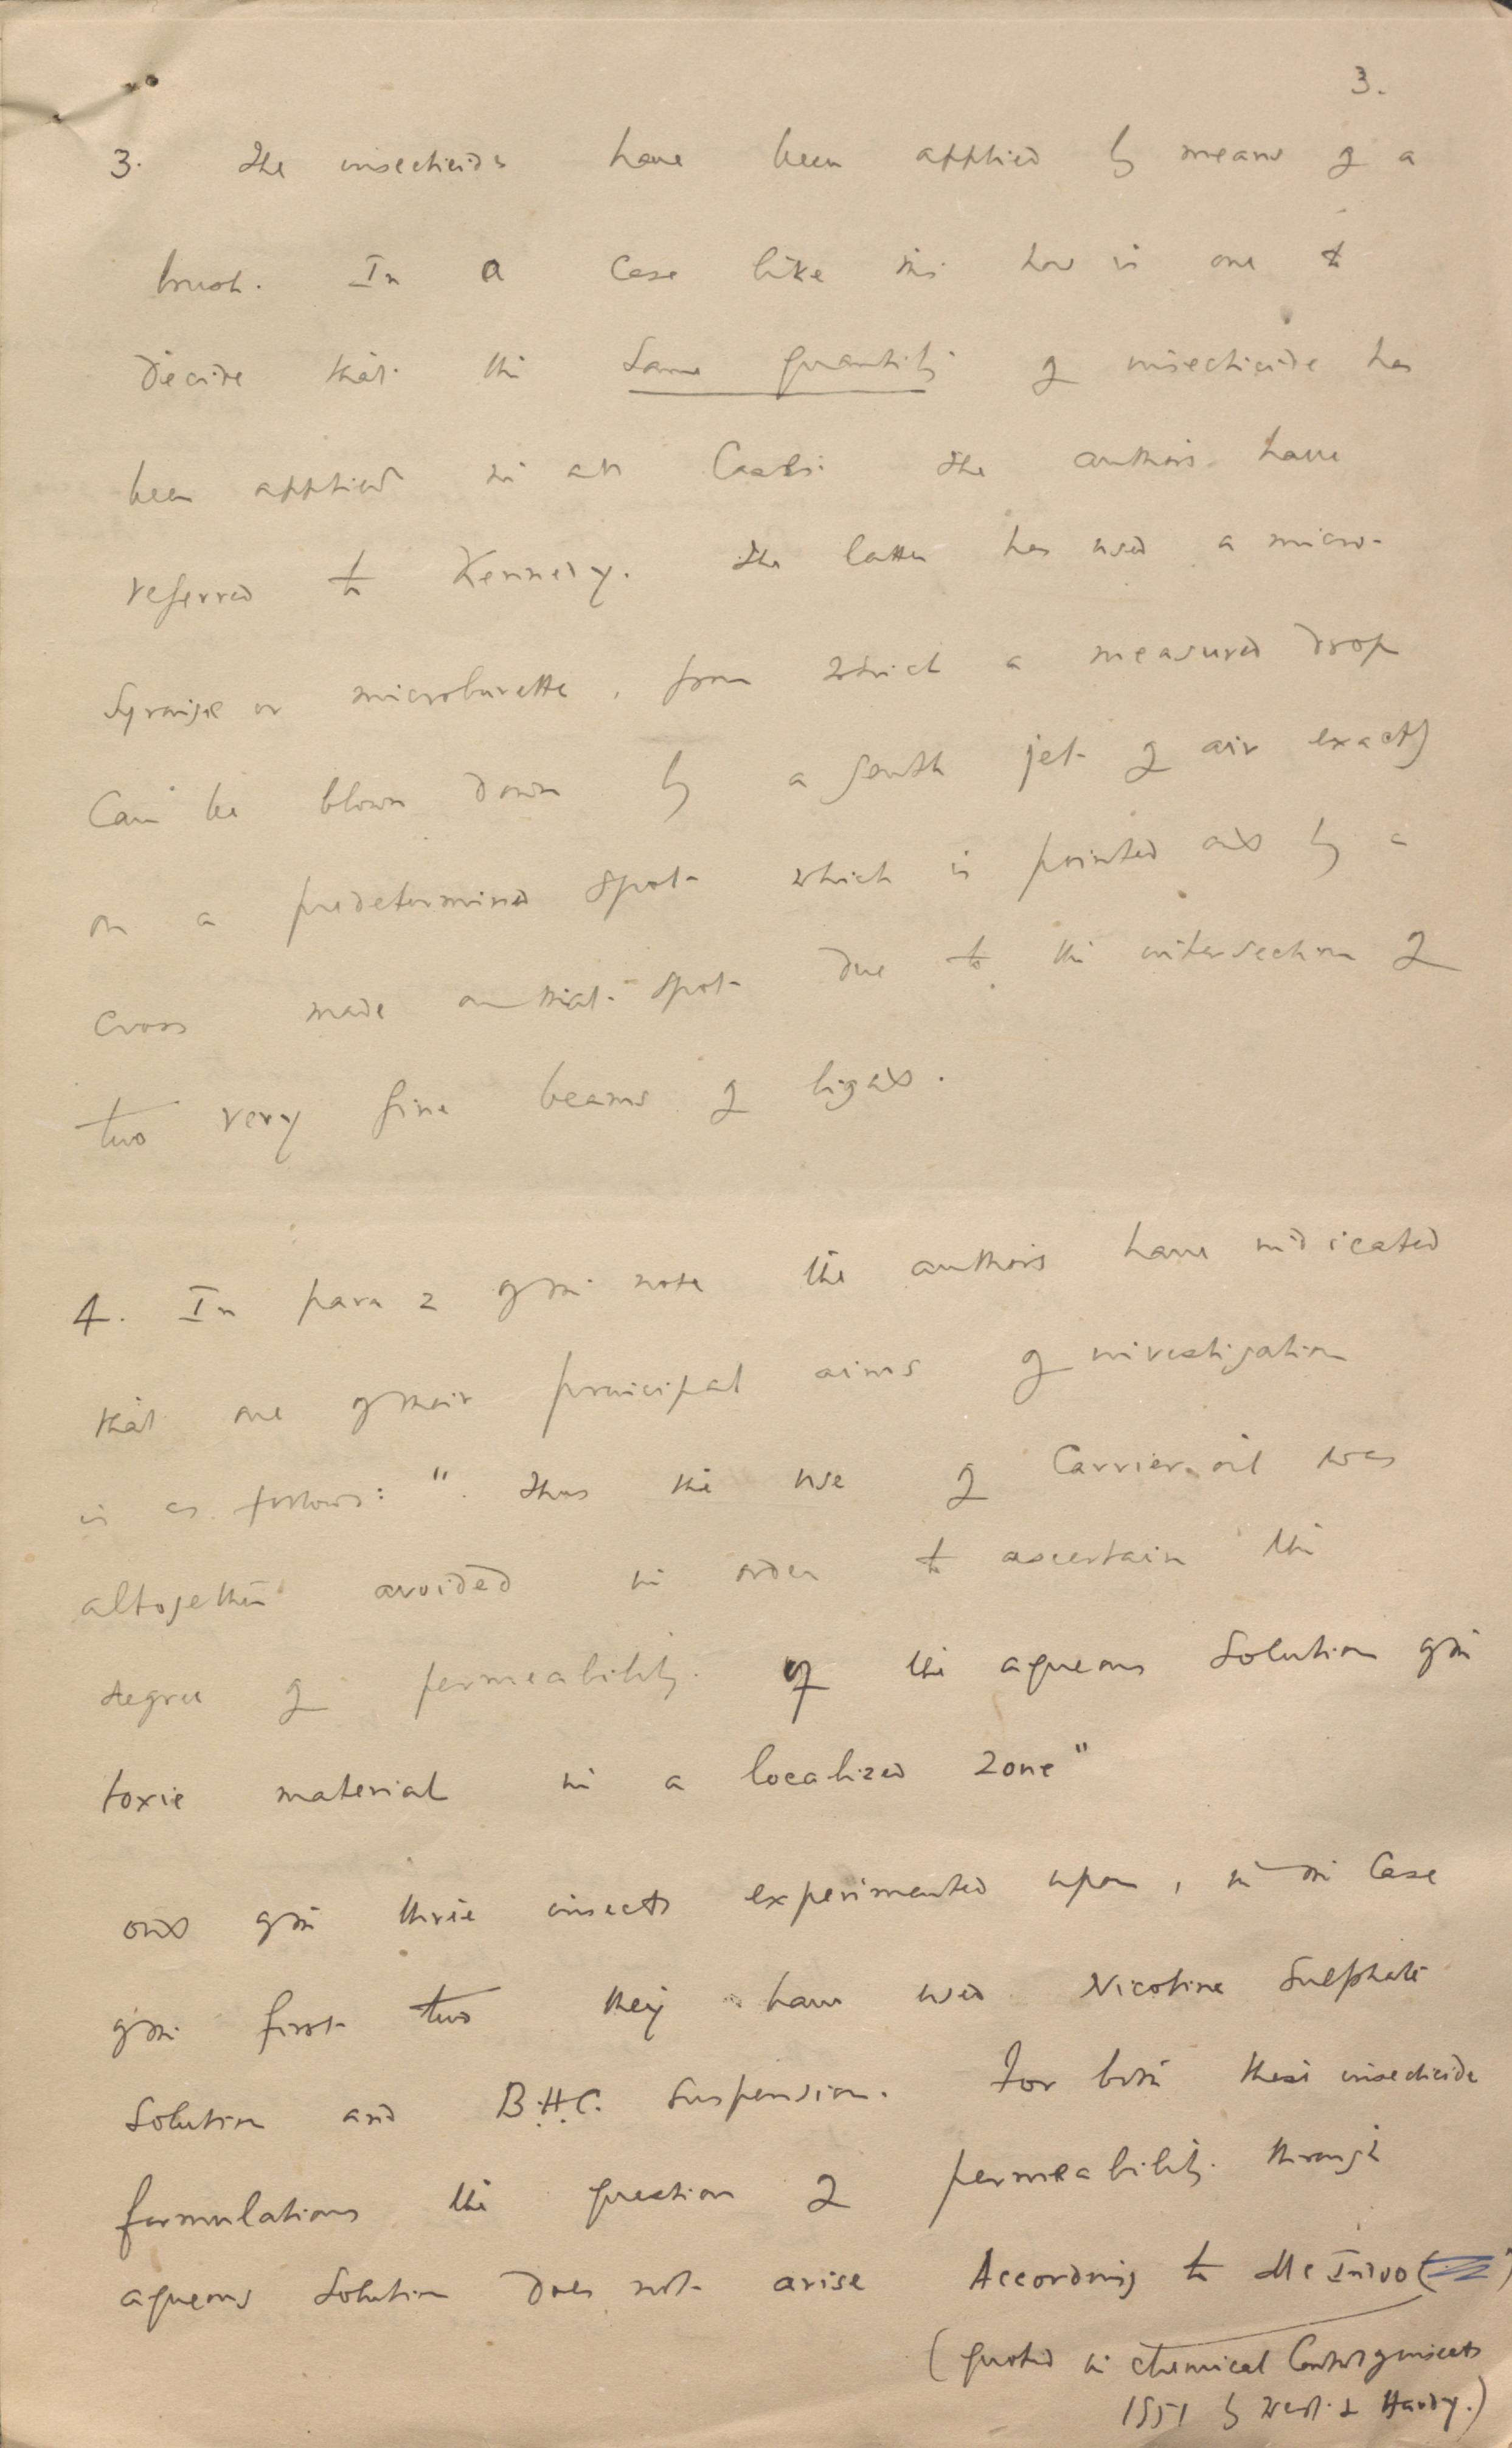 3.
3. The insecticides have been applied by means of a
brush. In a case like this how is one to
decide that the same quantity of insecticide has
been applied in all cases. The authors have
referred to Kennedy. The latter has used a micro-
syringe or microburette, from which a measured drop
can be blown down by a gentle jet of air exactly
on a predetermined spot which is pointed out by a
cross made on that spot due to the intersection of
two very fine beams of light.
4. In para 2 of the note the authors have indicated
that one of their principal aims of investigation
is as follows: " Thus the use of carrier oil was
altogether avoided in order to ascertain the
degree of permeability of the aqueous solution of the
toxic material in a localized zone"
out of the three insects experimented upon, in the case
of the first two they have used Nicotine Sulphate
solution and B.H.C. suspension. For both these insecticide
formulations the question of permeability through
aqueous solution does not arise According to McIndoo (
(quoted in chemical Control of insects
1951 by West & Hardy.)